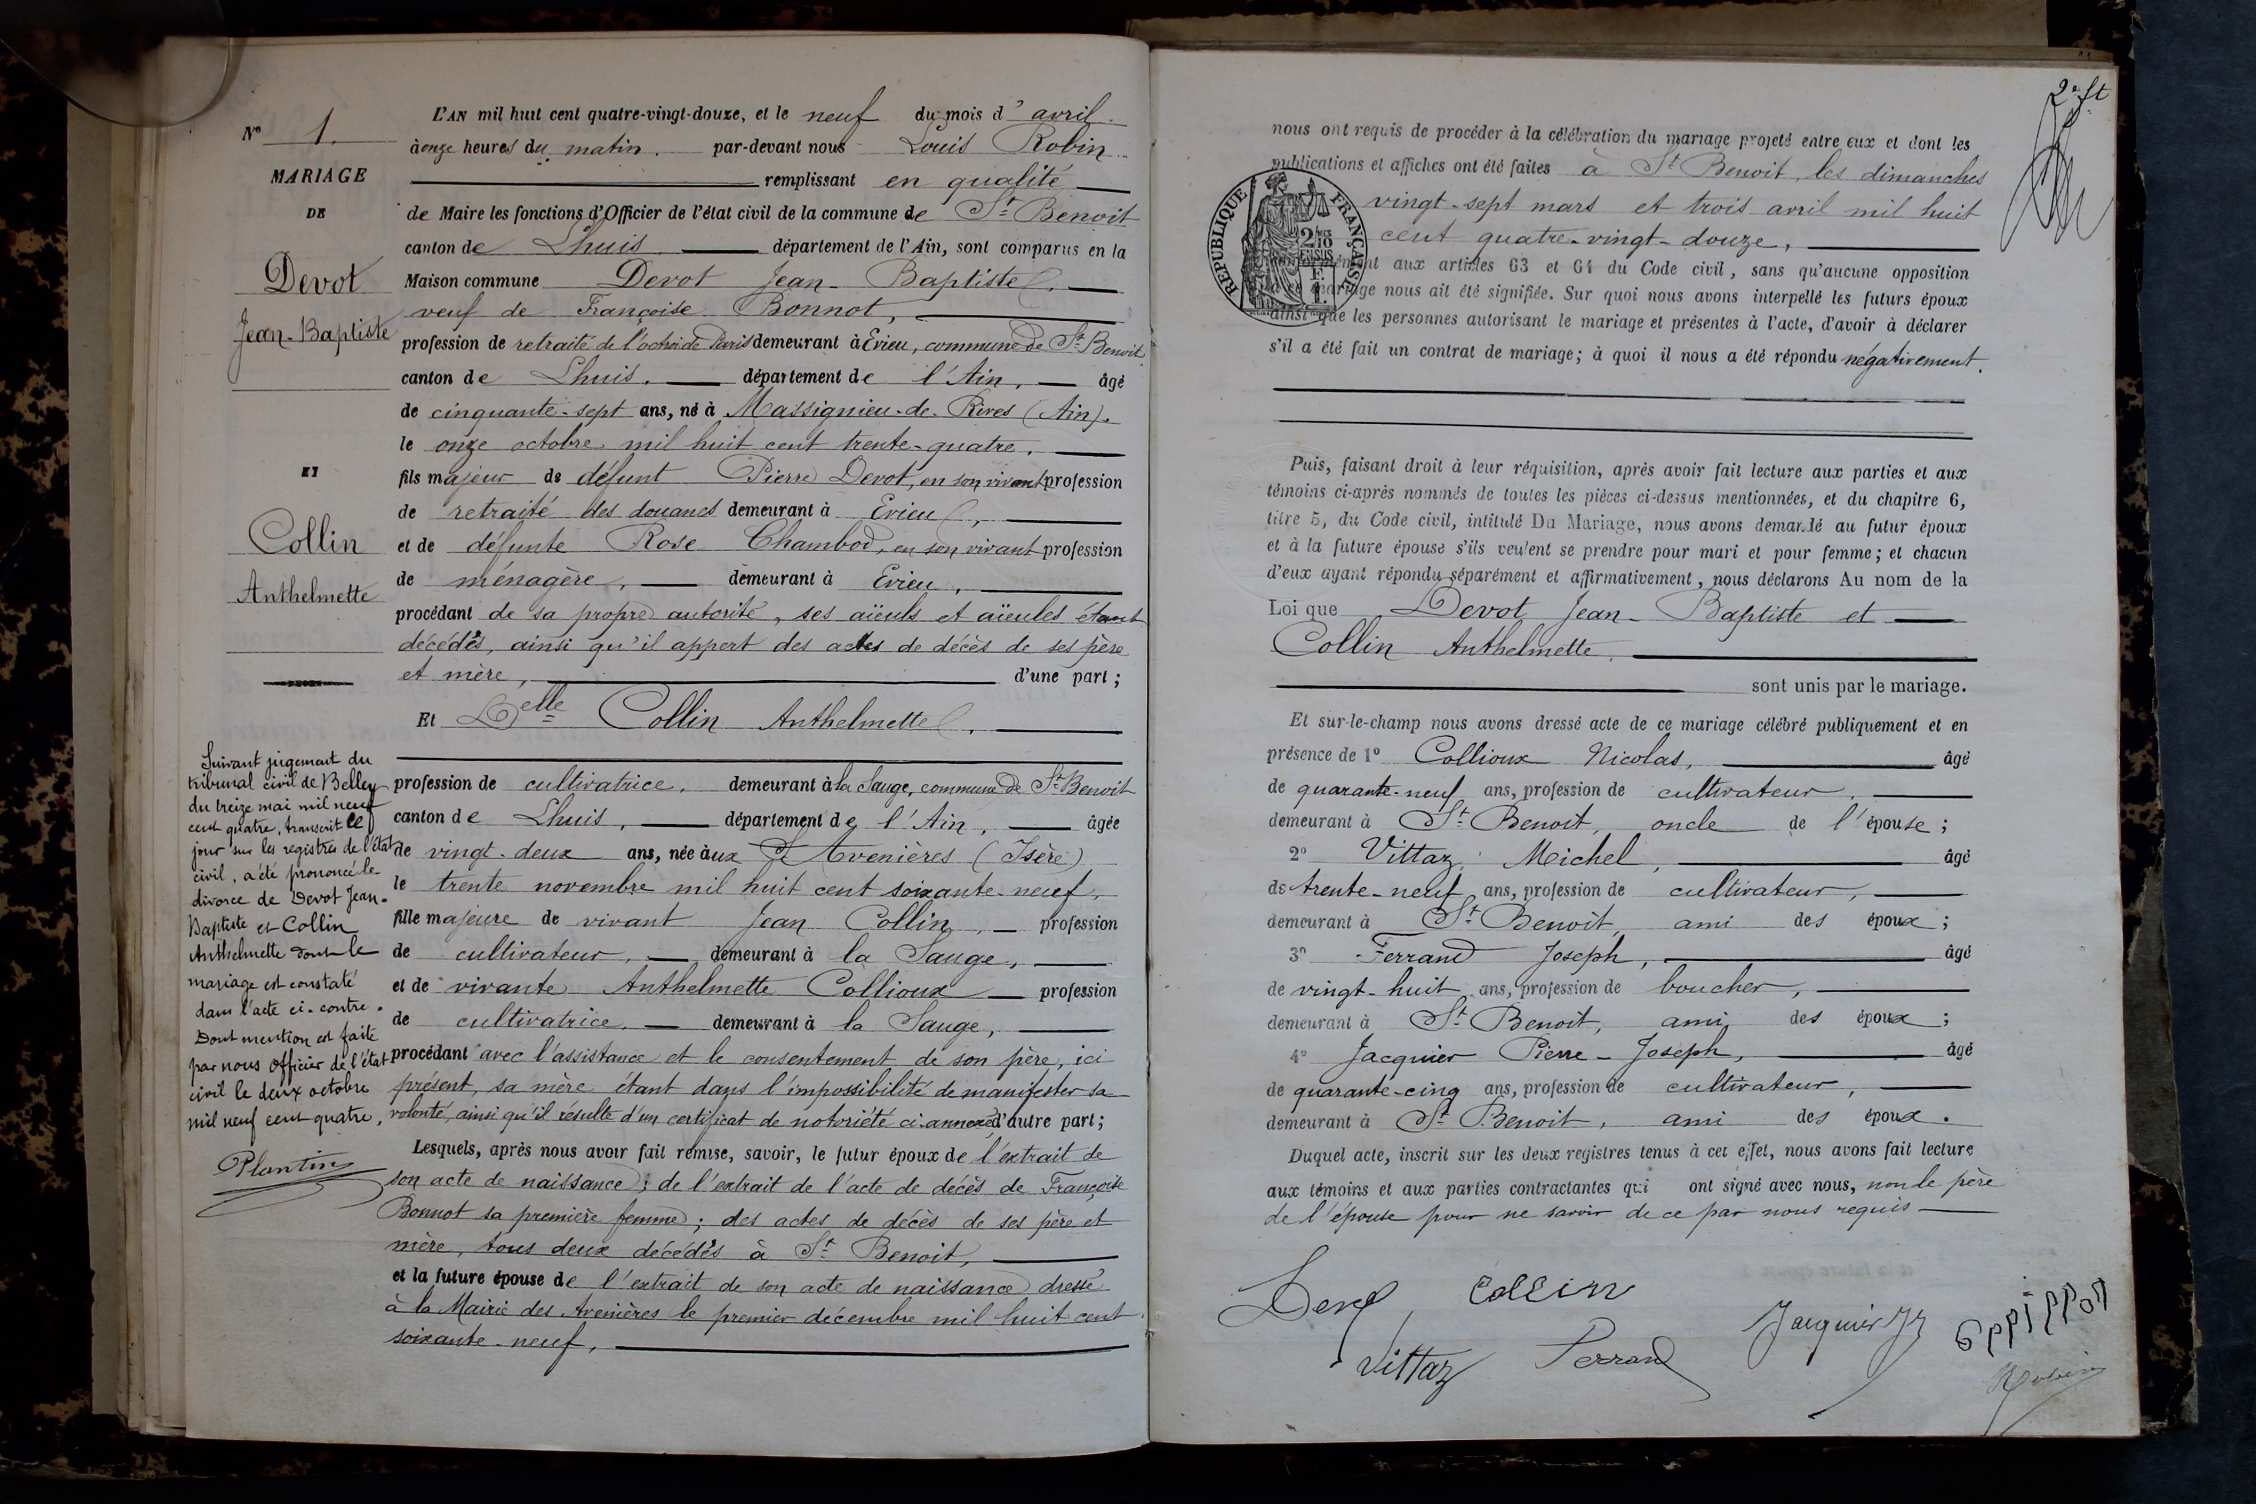 N° 1.
MARIAGE
DE
Devot
Jean-Baptiste
ET
Collin
Anthelmette
Suivant jugement du
tribunal civil de Belley
du treize mai mil neuf
cent quatre, transcrit ce
jour sur les registres de l'état
civil, a été prononcé le
divorce de Devot Jean-
Baptiste et Collin
Anthelmette dont le
mariage est constaté
dans l'acte ci-contre.
Dont mention est faite
par nous Officier de l'état
civil le deux octobre
mil neuf cent quatre.
Plantin
L'AN mil huit cent quatre-vingt-douze, et le neuf du mois d'avril
à onze heures du matin. par-devant nous Louis Robin
remplissant en qualité
de Maire les fonctions d'Officier de l'état civil de la commune de St Benoit
canton de Lhuis département de l'Ain, sont comparus en la
Maison commune Devot Jean-Baptiste,
veuf de Françoise Bonnot,
profession de retraité de l'octroi de Paris demeurant à Evieu, commune de St Benoit
canton de Lhuis. département de l'Ain, âgé
de cinquante-sept ans, né à Massignieu-de-Rives (Ain).
le onze octobre mil huit cent trente-quatre.
fils majeur de défunt Pierre Devot, en son vivant profession
de retraité des douanes demeurant à Evieu,
et de défunte Rose Chambod, en son vivant profession
de ménagère, demeurant à Evieu,
procédant de sa propre autorité, ses aïeuls et aïeules étant
décédés, ainsi qu'il appert des actes de décès de ses père
et mère, d'une part;
Et Delle Collin Anthelmette,
profession de cultivatrice, demeurant à la Sauge, commune de St Benoit
canton de Lhuis, département de l'Ain, âgée
de vingt-deux ans, née aux Avenières (Isère)
le trente novembre mil huit cent soixante-neuf,
fille majeure de vivant Jean Collin, profession
de cultivateur, demeurant à la Sauge,
et de vivante Anthelmette Collioux profession
de cultivatrice, demeurant à la Sauge,
procédant avec l'assistance et le consentement de son père, ici
présent, sa mère étant dans l'impossibilité de manifester sa
volonté, ainsi qu'il résulte d'un certificat de notoriété ci-annexé d'autre part;
Lesquels, après nous avoir fait remise, savoir, le futur époux de l'extrait de
son acte de naissance; de l'extrait de l'acte de décès de Françoise
Bonnot sa première femme; des actes de décès de ses père et
mère, tous deux décédés à St Benoit,
et la future épouse de l'extrait de son acte de naissance dressé
à la Mairie des Avenières le premier décembre mil huit cent
soixante-neuf,
nous ont requis de procéder à la célébration du mariage projeté entre eux et dont les
publications et affiches ont été faites à St Benoit, les dimanches
vingt-sept mars et trois avril mil huit
cent quatre-vingt-douze,
conformément aux articles 63 et 64 du Code civil, sans qu'aucune opposition
à ce mariage nous ait été signifiée. Sur quoi nous avons interpellé les futurs époux
ainsi que les personnes autorisant le mariage et présentes à l'acte, d'avoir à déclarer
s'il a été fait un contrat de mariage; à quoi il nous a été répondu négativement.
RÉPUBLIQUE FRANÇAISE
2/10 EN SUS
Puis, faisant droit à leur réquisition, après avoir fait lecture aux parties et aux
témoins ci-après nommés de toutes les pièces ci-dessus mentionnées, et du chapitre 6,
titre 5, du Code civil, intitulé Du Mariage, nous avons demandé au futur époux
et à la future épouse s'ils veulent se prendre pour mari et pour femme; et chacun
d'eux ayant répondu séparément et affirmativement, nous déclarons Au nom de la
Loi que Devot Jean-Baptiste et
Collin Anthelmette,
sont unis par le mariage.
Et sur-le-champ nous avons dressé acte de ce mariage célébré publiquement et en
présence de 1° Collioux Nicolas, âgé
de quarante-neuf ans, profession de cultivateur,
demeurant à St Benoit, oncle de l'épouse;
2° Vittaz Michel, âgé
de trente-neuf ans, profession de cultivateur,
demeurant à St Benoit, ami des époux;
3° Ferrand Joseph, âgé
de vingt-huit ans, profession de boucher,
demeurant à St Benoit, ami des époux;
4° Jacquier Pierre-Joseph, âgé
de quarante-cinq ans, profession de cultivateur,
demeurant à St Benoit, ami des époux.
Duquel acte, inscrit sur les deux registres tenus à cet effet, nous avons fait lecture
aux témoins et aux parties contractantes qui ont signé avec nous, non le père
de l'épouse pour ne savoir de ce par nous requis
Devot Collin
Jacquier
Vittaz Ferrand
Robin